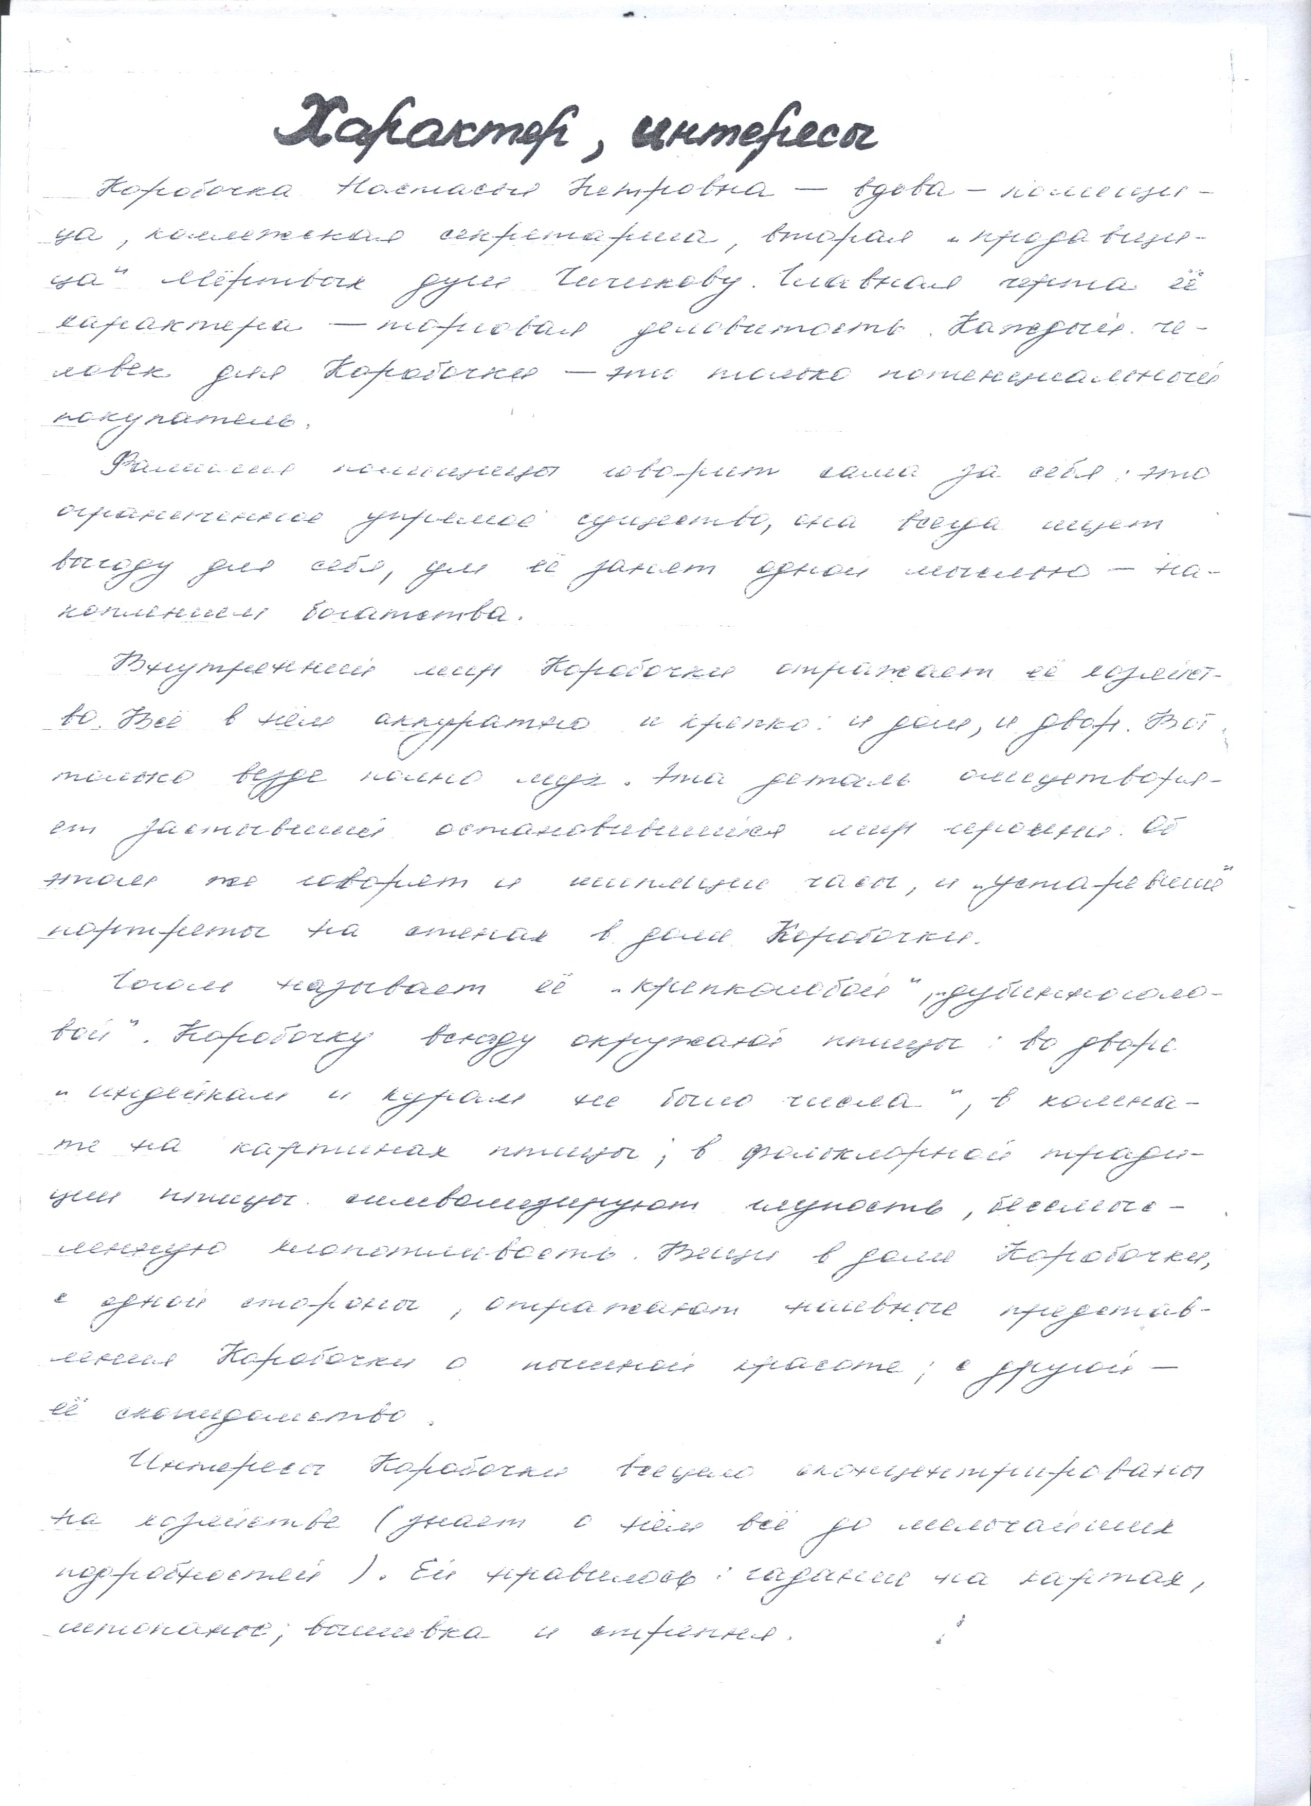 Характер, интересы
Коробочка Настасья Петровна — вдова-помещи-
ца, коллежская секретарша, вторая „продавщи-
ца“ мёртвых душ Чичикову. Главная черта её
характера — торговая деловитость. Каждый че-
ловек для Коробочки — это только потенциальный
покупатель.
Фамилия помещицы говорит сама за себя: это
ограниченное упрямое существо, она всегда ищет
выгоду для себя, ум её занят одной мыслью — на-
коплением богатства.
Внутренний мир Коробочки отражает её хозяйст-
во. Всё в нём аккуратно и крепко: и дом, и двор. Вот
только везде полно мух. Эта деталь олицетворя-
ет застывший остановившийся мир героини. Об
этом же говорят и шипящие часы, и „устаревшие“
портреты на стенах в доме Коробочки.
Гоголь называет её „крепколобой“, „дубинноголо-
вой“. Коробочку всюду окружают птицы: во дворе
„индейкам и курам не было числа“, в комна-
те на картинах птицы; в фольклорной тради-
ции птицы символизируют глупость, бессмыс-
ленную хлопотливость. Вещи в доме Коробочки,
с одной стороны, отражают наивные представ-
ления Коробочки о пышной красоте; с другой —
её скопидомство.
Интересы Коробочки всецело сконцентрированы
на хозяйстве (знает о нём всё до мельчайших
подробностей). Ей нравилось: гадание на картах,
штопанье, вышивка и стряпня.